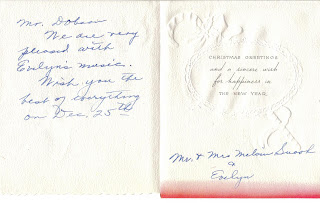 Mr. Dobson
We are very
pleased with
Evelyn's music.
Wish you the
best of everything
on Dec. 25th
CHRISTMAS GREETINGS
and a sincere wish
for happiness in
THE NEW YEAR.
Mr. & Mrs Melvin
&
Evelyn